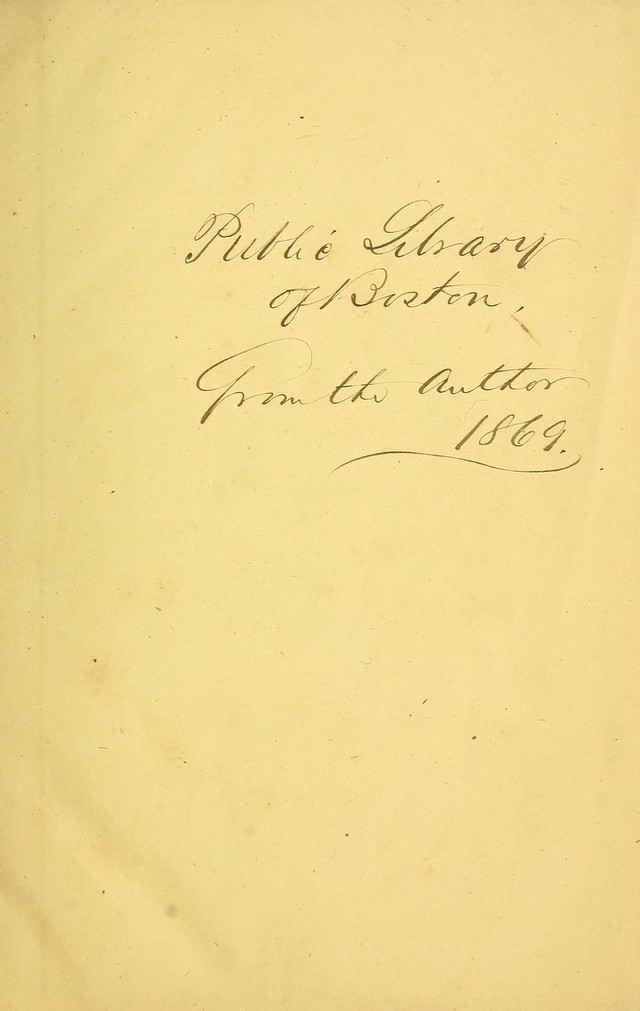 Public Library
of Boston,
From the Author
1869.